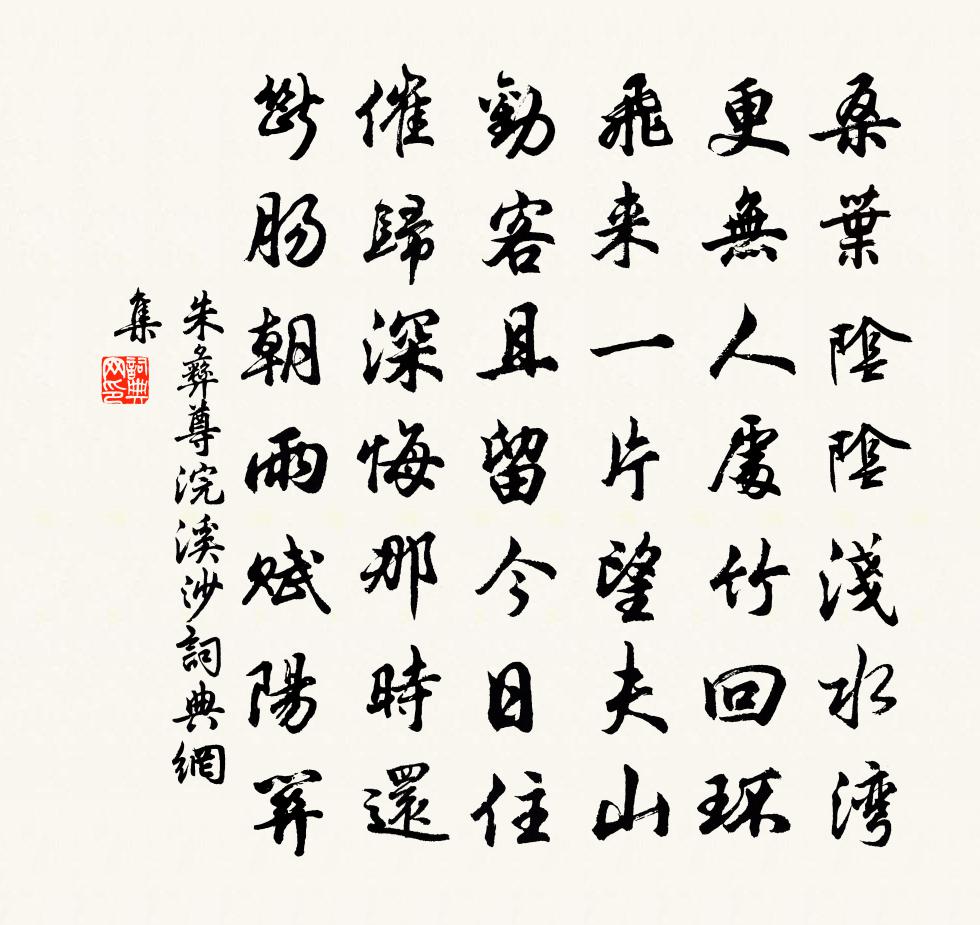 桑葉陰陰淺水湾
更無人處竹回环
飛来一片望夫山
勸客且留今日住
催歸深悔那時還
斷腸朝雨賦陽關
朱彝尊浣溪沙詞典網
集
詞典网印